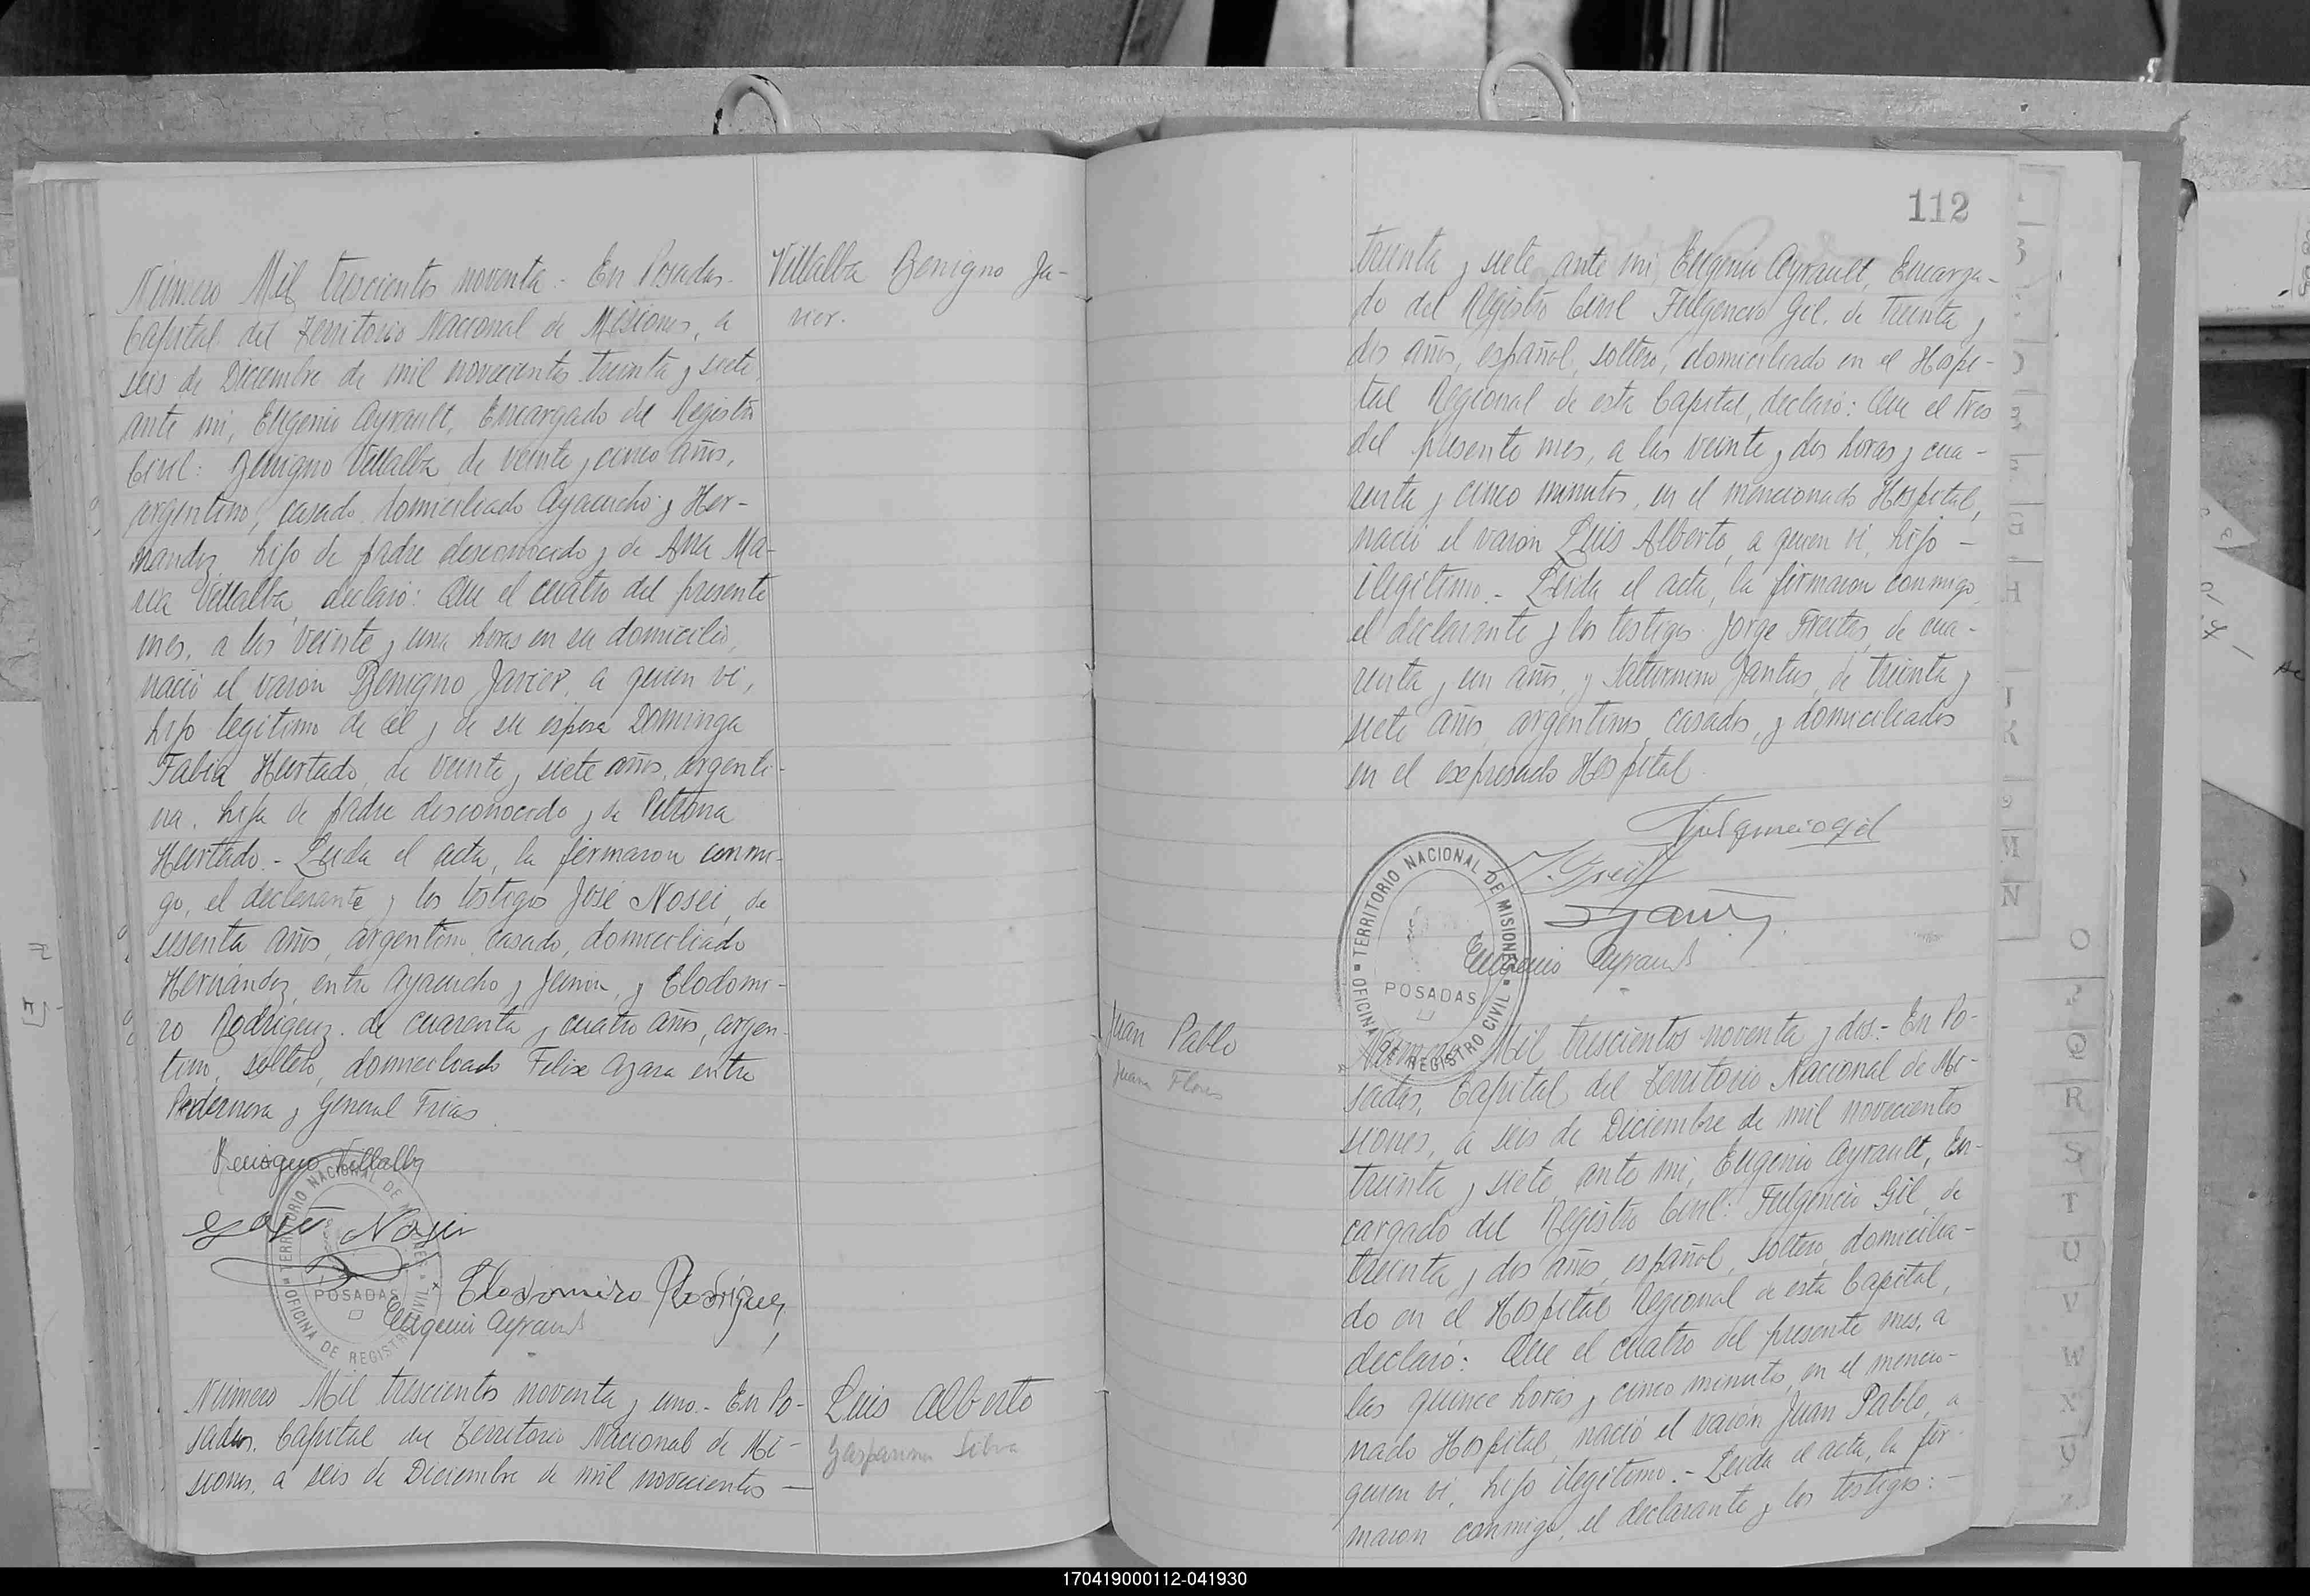 Número Mil trescientos noventa.- En Posadas.
Capital del Territorio Nacional de Misiones, a
seis de Diciembre de mil novecientos treinta y siete,
ante mi, Eugenio Ayrault, Encargado del Registro
Civil: Benigno Villalba, de veinte y cinco años,
argentino, casado, domiciliado Ayacucho y Her-
nandez, hijo de padre desconocido y de Ana Ma-
ria Villalba, declaró: Que el cuatro del presente
mes, a las veinte y una horas en su domicilio,
nació el varon Benigno Javier, a quien vi,
hijo legitimo de él y de su esposa Dominga
Fabia Hurtado, de veinte y siete años, argenti-
na, hija de padre desconocido y de Petrona
Hurtado.- Leida el acta, la firmaron conmi-
go, el declarante y los testigos José Nosei, de
sesenta años, argentino, casado, domiciliado
Hernández, entre Ayacucho y Junin, y Clodomi-
ro Rodriguez, de cuarenta y cuatro años, argen-
tino, soltero, domiciliado Felix Azara entre
Pedernera y General Frias.
Benigno Villalba
José Nosei
Clodomiro Rodriguez
Eugenio Ayrault
TERRITORIO NACIONAL DE MISIONES
POSADAS
OFICINA DE REGISTRO CIVIL
Villalba Benigno Ja-
vier.
Número Mil trescientos noventa y uno.- En Po-
sadas, Capital del Territorio Nacional de Mi-
siones, a seis de Diciembre de mil novecientos
Luis Alberto
Silva
112
treinta y siete, ante mi, Eugenio Ayrault, Encarga-
do del Registro Civil Fulgencio Gil, de treinta y
dos años, español, soltero, domiciliado en el Hospi-
tal Regional de esta Capital, declaró: Que el tres
del presente mes, a las veinte y dos horas y cua-
renta y cinco minutos, en el mencionado Hospital,
nació el varon Luis Alberto, a quien vi, hijo -
ilegitimo.- Leida el acta, la firmaron conmigo,
el declarante y los testigos Jorge Freites, de cua-
renta y un años, y Saturnino Jantus, de treinta y
siete años, argentinos, casados, y domiciliados
en el expresado Hospital.
Fulgencio Gil
Eugenio Ayrault
TERRITORIO NACIONAL DE MISIONES
POSADAS
OFICINA DE REGISTRO CIVIL
Juan Pablo
Juana Flores
Número Mil trescientos noventa y dos.- En Po-
sadas, Capital del Territorio Nacional de Mi-
siones, a seis de Diciembre de mil novecientos
treinta y siete, ante mi, Eugenio Ayrault, En-
cargado del Registro Civil: Fulgencio Gil, de
treinta y dos años, español, soltero, domicilia-
do en el Hospital Regional de esta Capital,
declaró: Que el cuatro del presente mes, a
las quince horas y cinco minutos, en el mencio-
nado Hospital, nació el varon Juan Pablo, a
quien vi, hijo ilegitimo.- Leida el acta, la fir-
maron conmigo, el declarante y los testigos:-
H
J
K
M
N
O
P
Q
R
S
T
U
V
W
X
170419000112-041930